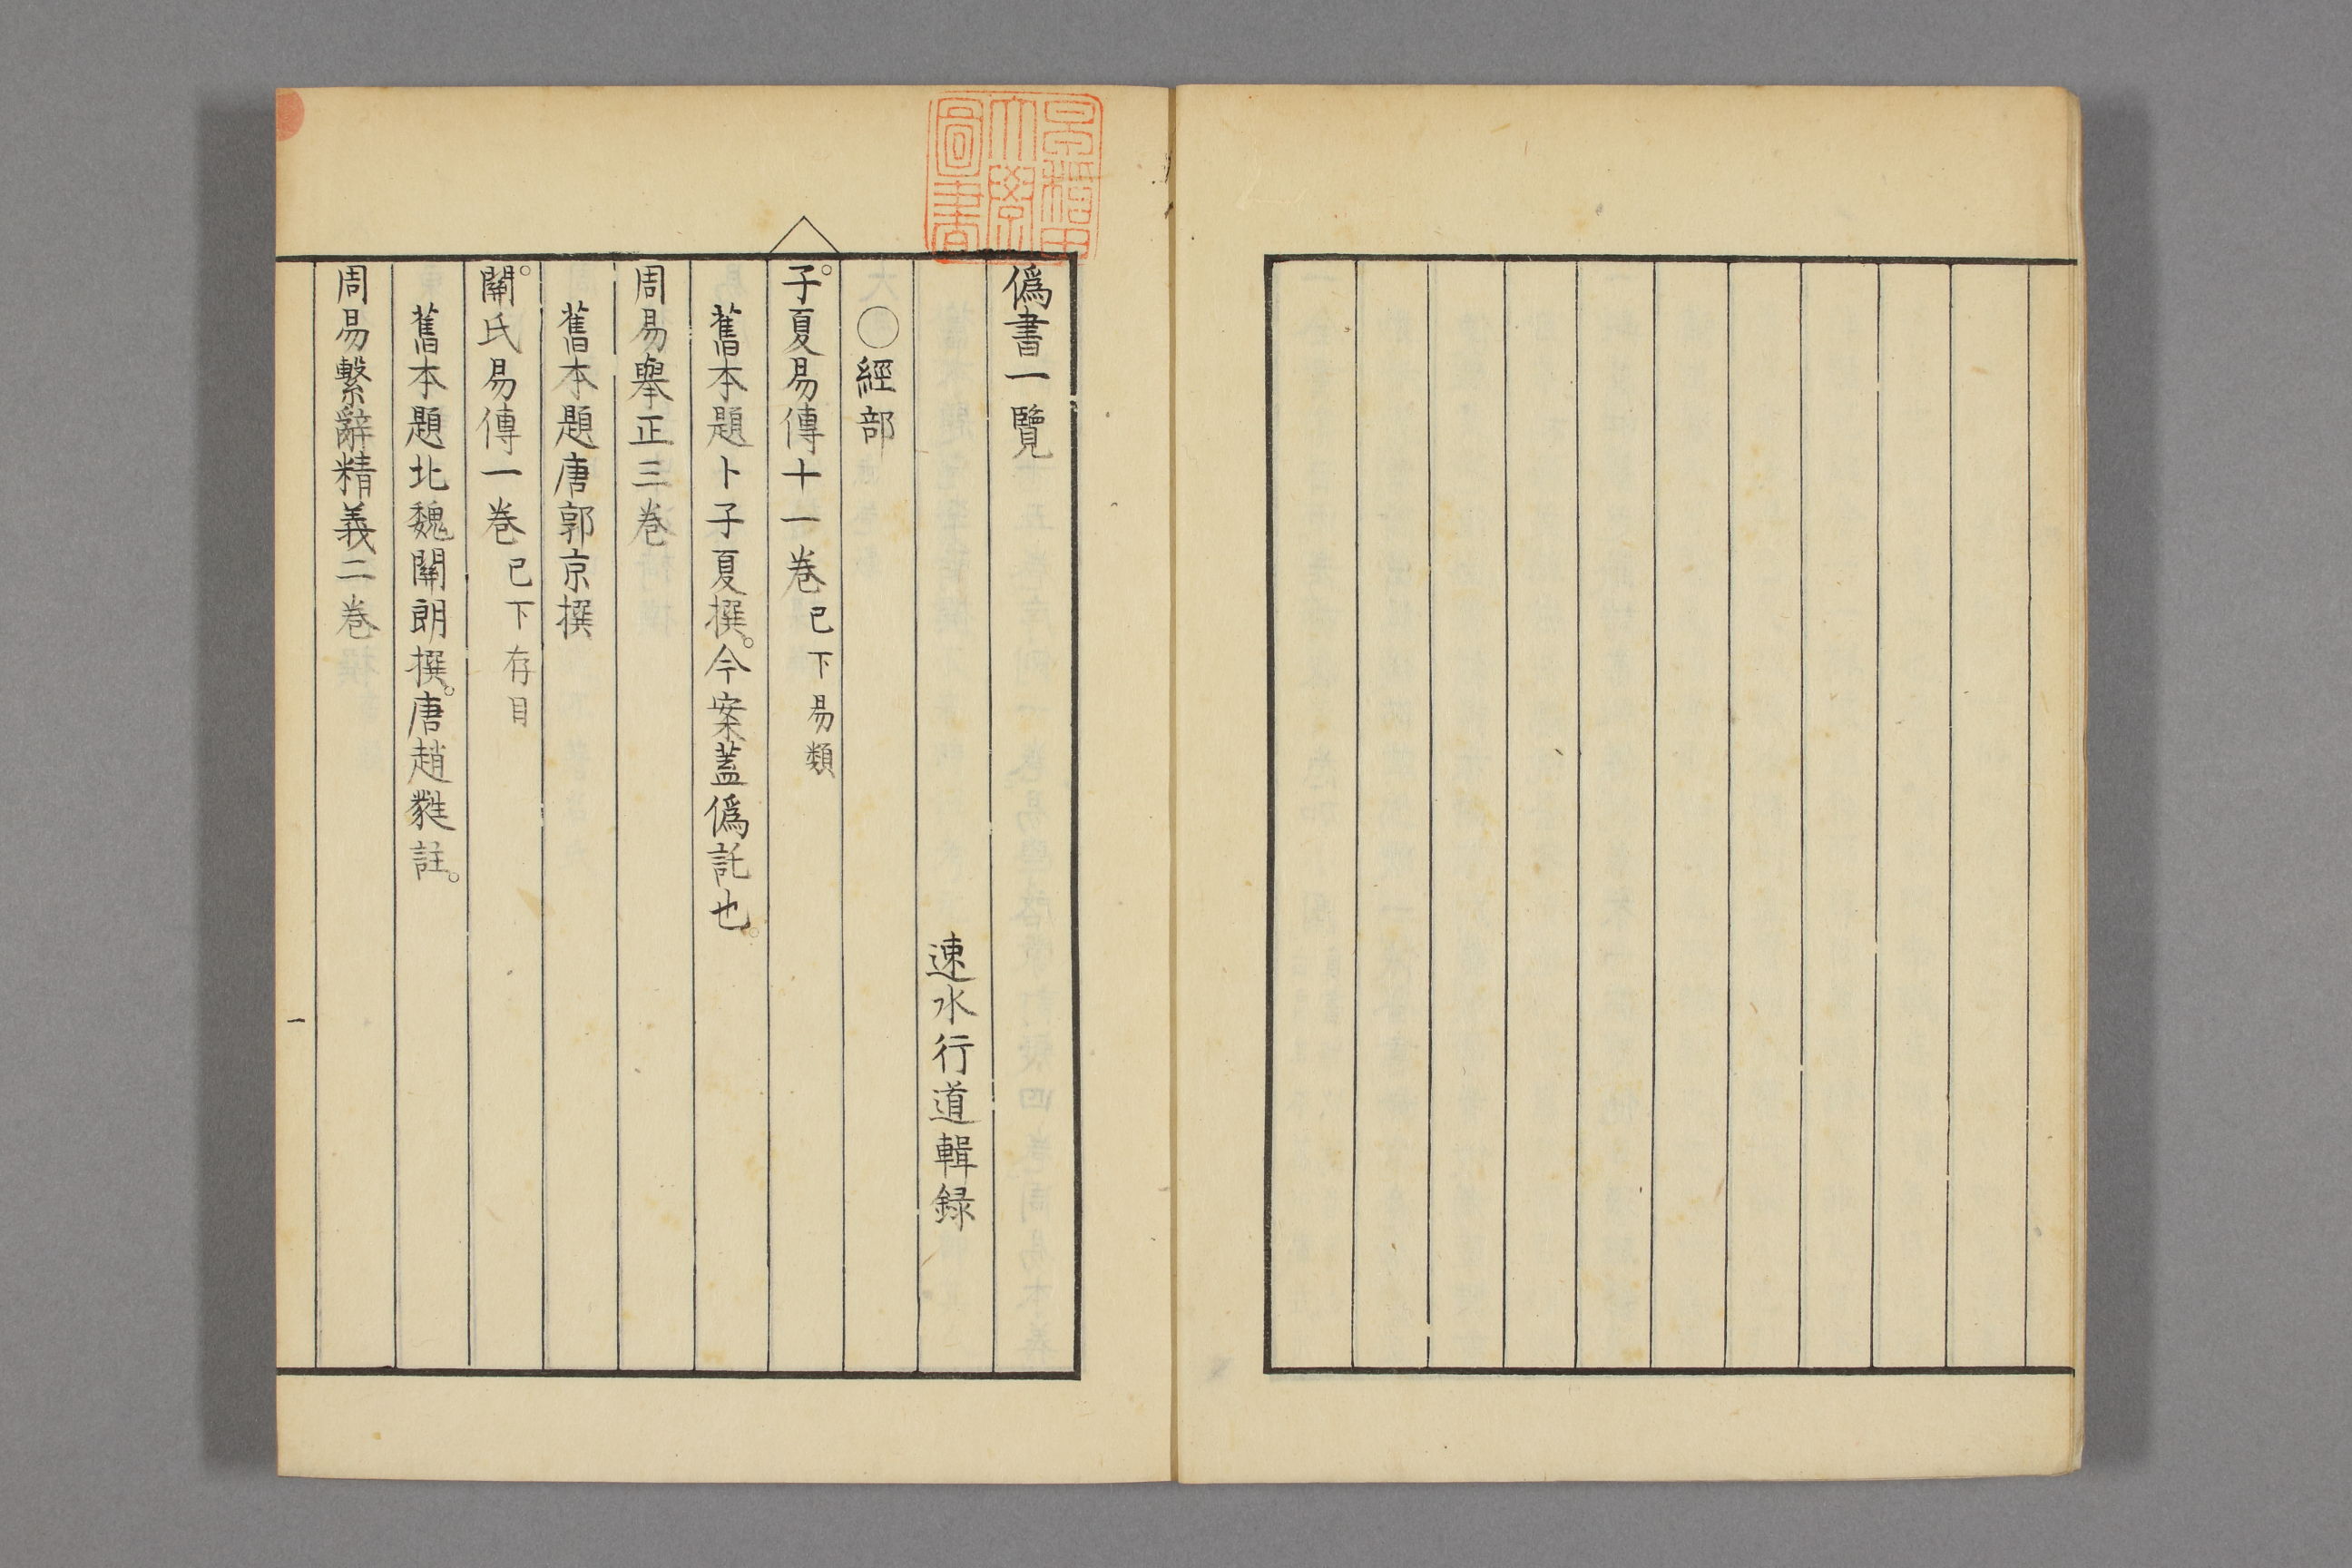 偽書一覽
速水行道輯録
○經部
子夏易傳十一卷 已下易類
舊本題卜子夏撰。今案蓋偽託也。
周易擧正三卷
舊本題唐郭京撰
關氏易傳一卷 已下存目
舊本題北魏關朗撰。唐趙蕤註。
周易繫辭精義二卷
一
早稻田大學圖書